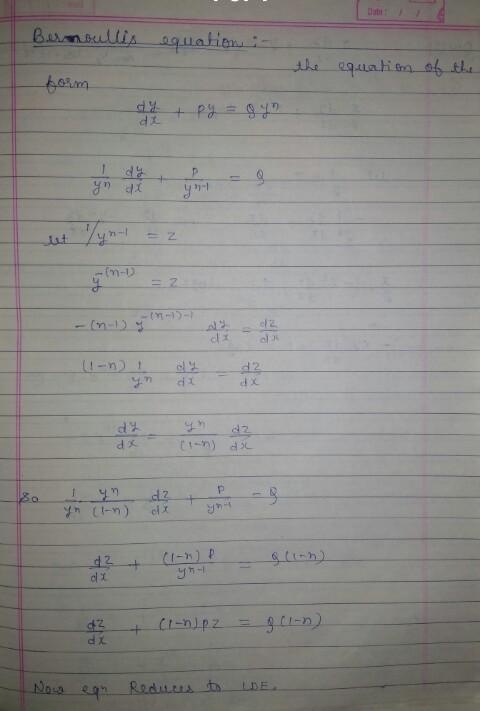 Date: / /
Bernoullis equation :-
the equation of the
form
dy/dx + py = Q yⁿ
1/yⁿ dy/dx + P/yⁿ⁻¹ = Q
let 1/yⁿ⁻¹ = z
y^-(n-1) = z
-(n-1) y^-(n-1)-1 dy/dx = dz/dx
(1-n) 1/yⁿ dy/dx = dz/dx
dy/dx = yⁿ/(1-n) dz/dx
So 1/yⁿ yⁿ/(1-n) dz/dx + P/yⁿ⁻¹ = Q
dz/dx + (1-n) P/yⁿ⁻¹ = Q(1-n)
dz/dx + (1-n) pz = Q(1-n)
Now eqn Reduces to LDE.